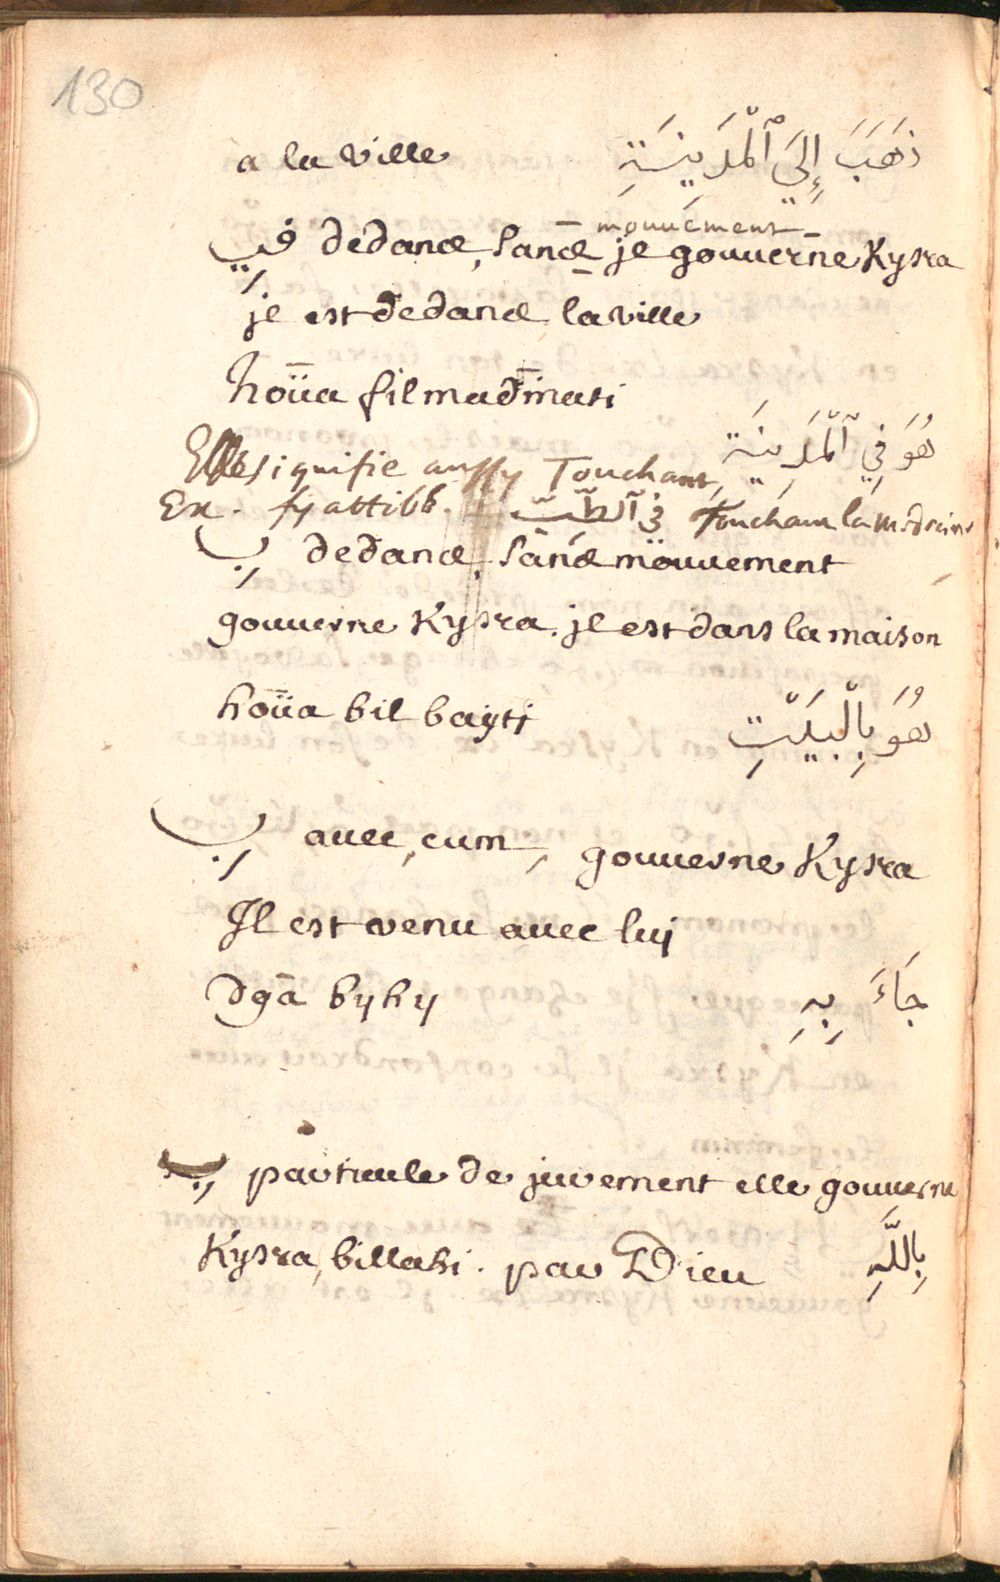 130
a la ville ذَهَبَ إِلَيَ ٱلْمَدِينَةِ
mouuement
فِي dedans, sans je gouuerne Kysra
jl est dedans la ville
hoüa fil madinati
هُوَ فِي ٱلْمَدِينَةِ
Elle signifie aussy Touchant,
Ex. fy attibb. فى ٱلطِّبّ Touchant la médecine
بِ dedans, sans mouuement
gouuerne Kysra. jl est dans la maison
hoüa bil bayti هُوَ بِالْبَيْتِ
بِ auec, cum, gouuerne Kysra
Il est venu auec luy
dgā byhy جَاءَ بِهِ
بِ particule de jurement elle gouuerne
Kysra, billahi. par Dieu بِاللَّهِ